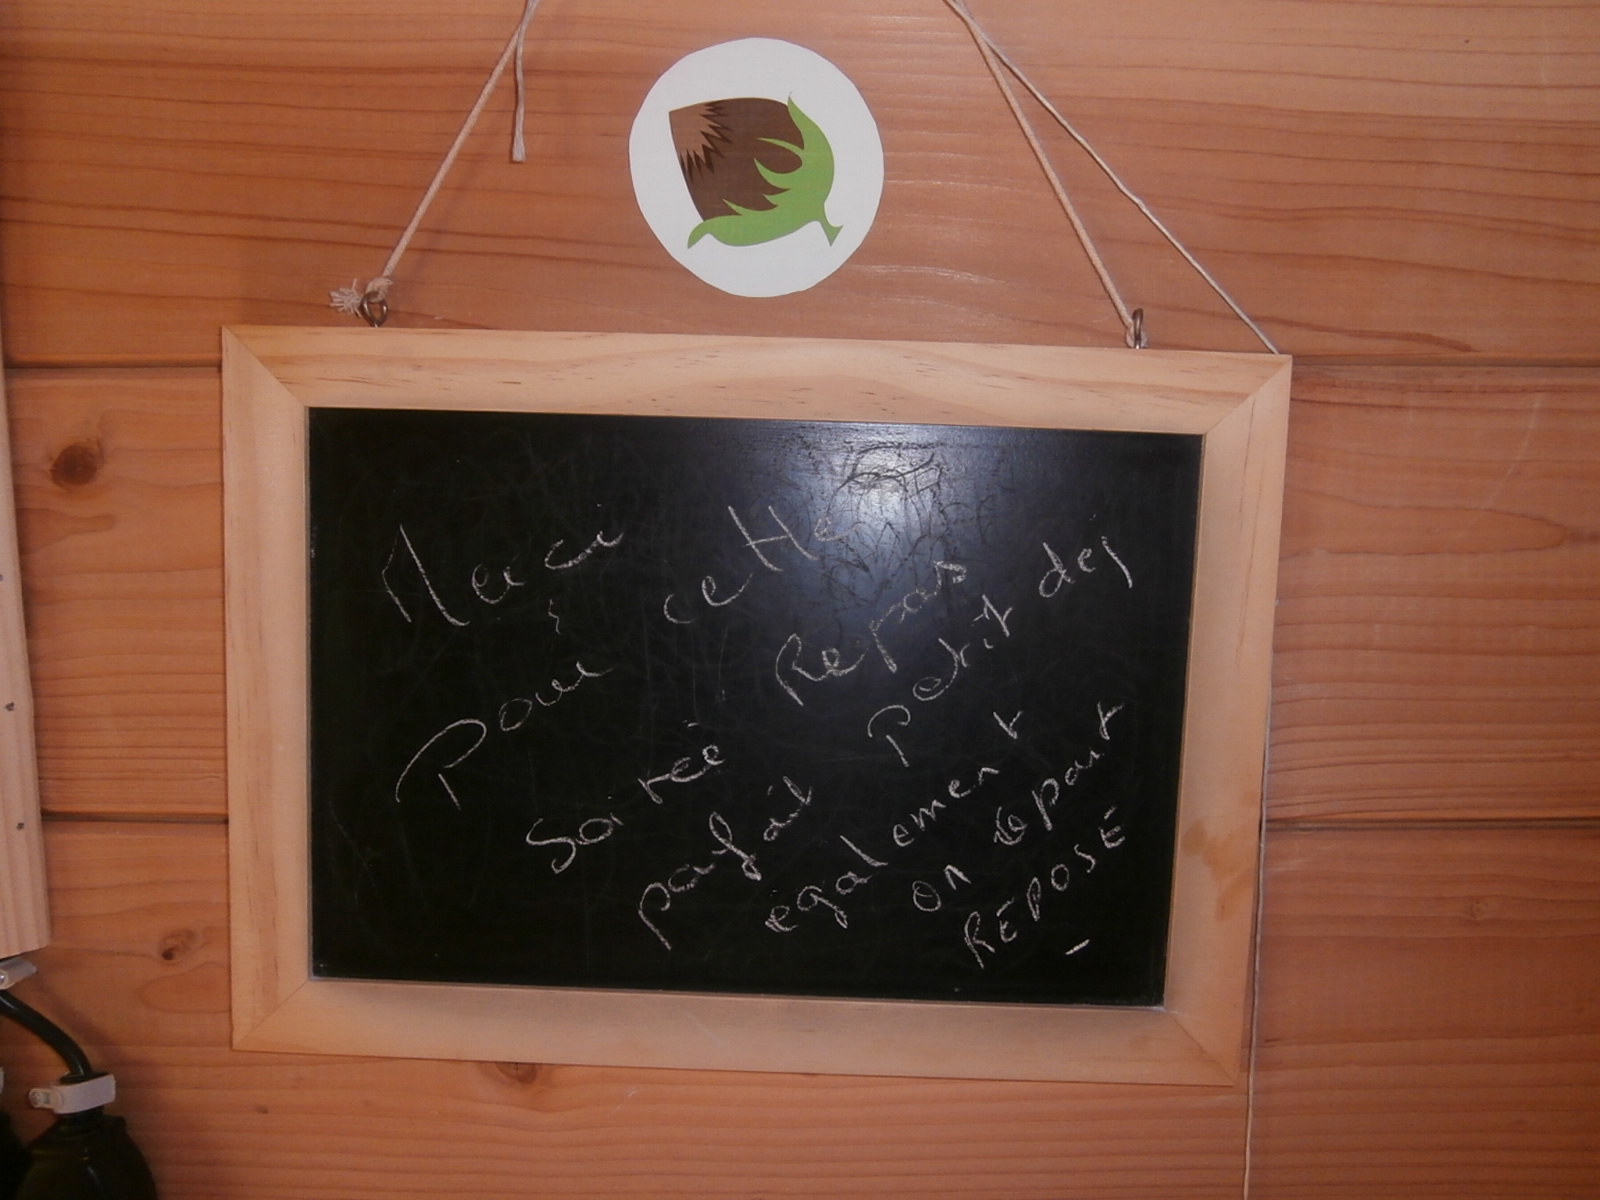 Merci
Pour cette
Soirée Repas
parfait Petit dej
egalement
on répart
REPOSÉ